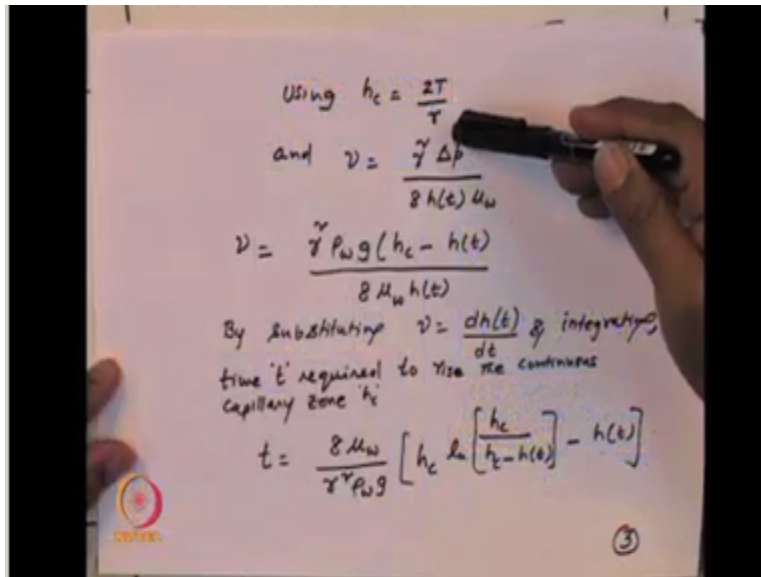 Using h_c = 2T / r
and v = r² Δp / 8 h(t) μ_w
v = r² ρ_w g (h_c - h(t) / 8 μ_w h(t)
By substituting v = dh(t) / dt & integrating,
time 't' required to rise the continuous
capillary zone 'h_c'
t = 8 μ_w / r² ρ_w g [ h_c ln [ h_c / h_c - h(t) ] - h(t) ]
3
NPTEL